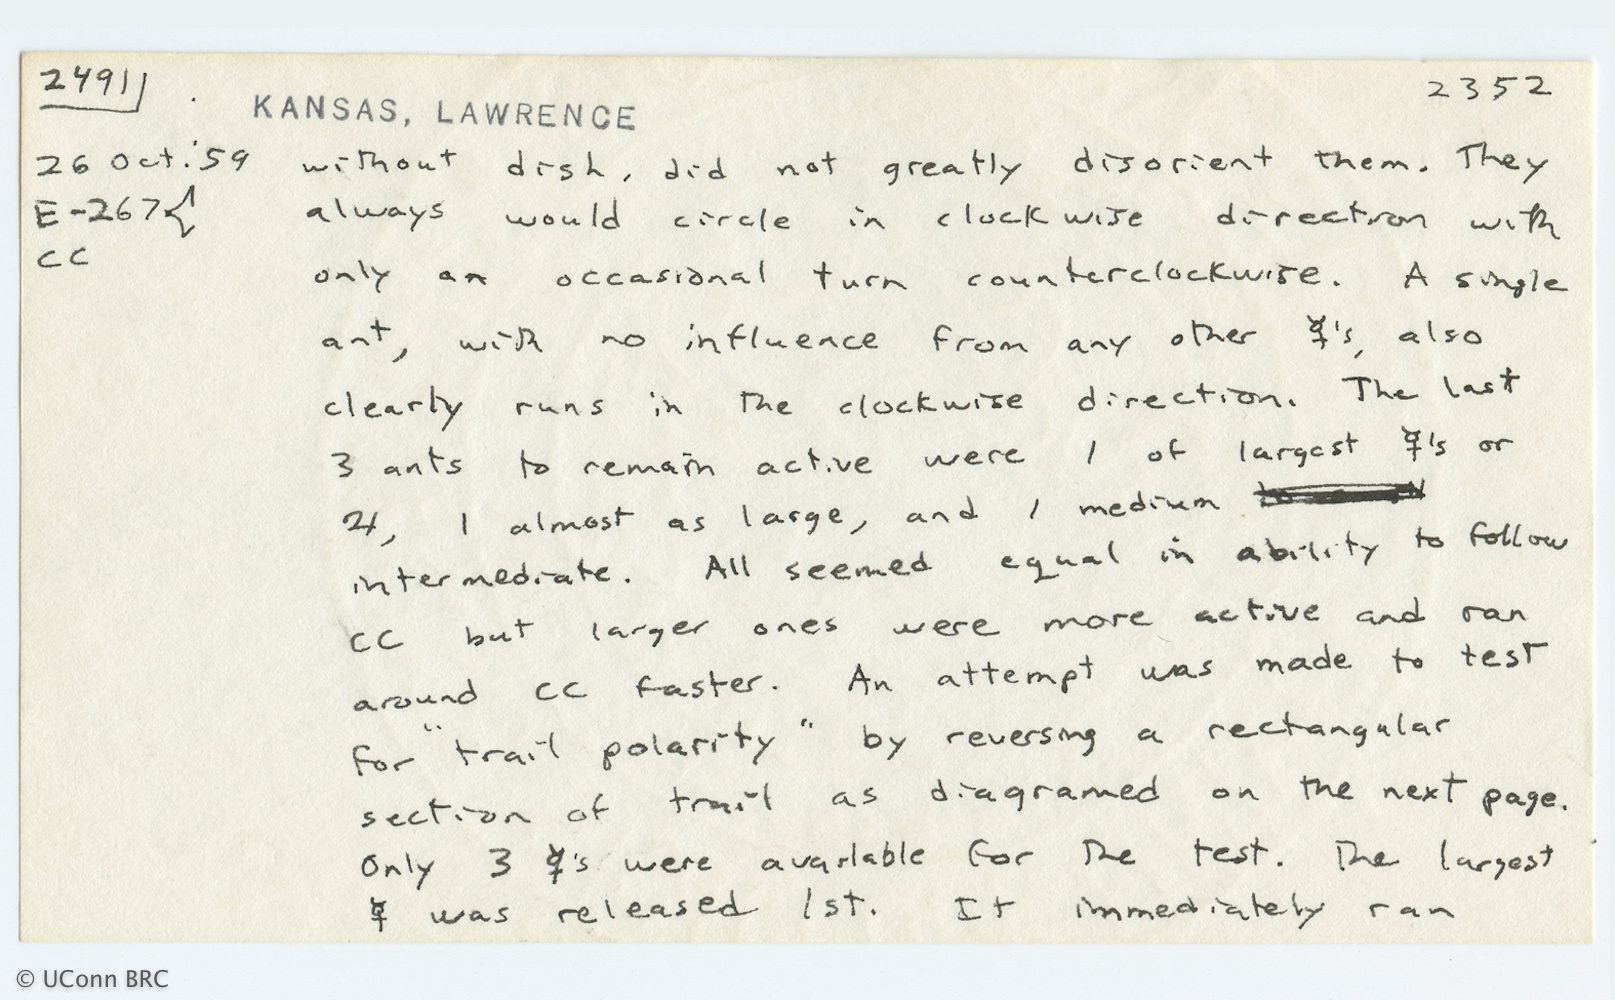 2491
2352
KANSAS, LAWRENCE
26 Oct. '59 without dish, did not greatly disorient them. They
E-267 always would circle in clockwise direction with
CC only an occasional turn counterclockwise. A single
ant, with no influence from any other ☿'s, also
clearly runs in the clockwise direction. The last
3 ants to remain active were 1 of largest ☿'s or
♃, 1 almost as large, and 1 medium
intermediate. All seemed equal in ability to follow
CC but larger ones were more active and ran
around CC faster. An attempt was made to test
for "trail polarity" by reversing a rectangular
section of trail as diagramed on the next page.
Only 3 ☿'s were available for the test. The largest
☿ was released 1st. It immediately ran
© UConn BRC